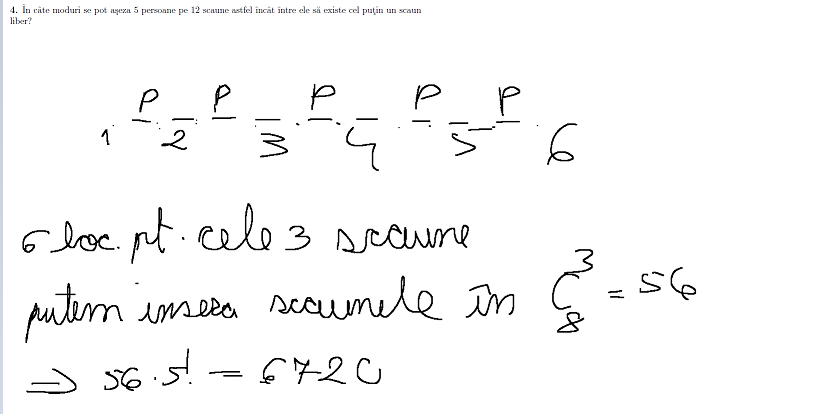 4. În câte moduri se pot așeza 5 persoane pe 12 scaune astfel încât între ele să existe cel puțin un scaun
liber?
P P P P P
1 2 3 4 5 6
6 loc. pt. cele 3 scaune
putem insera scaunele în C₈³ = 56
⇒ 56 · 5! = 6720